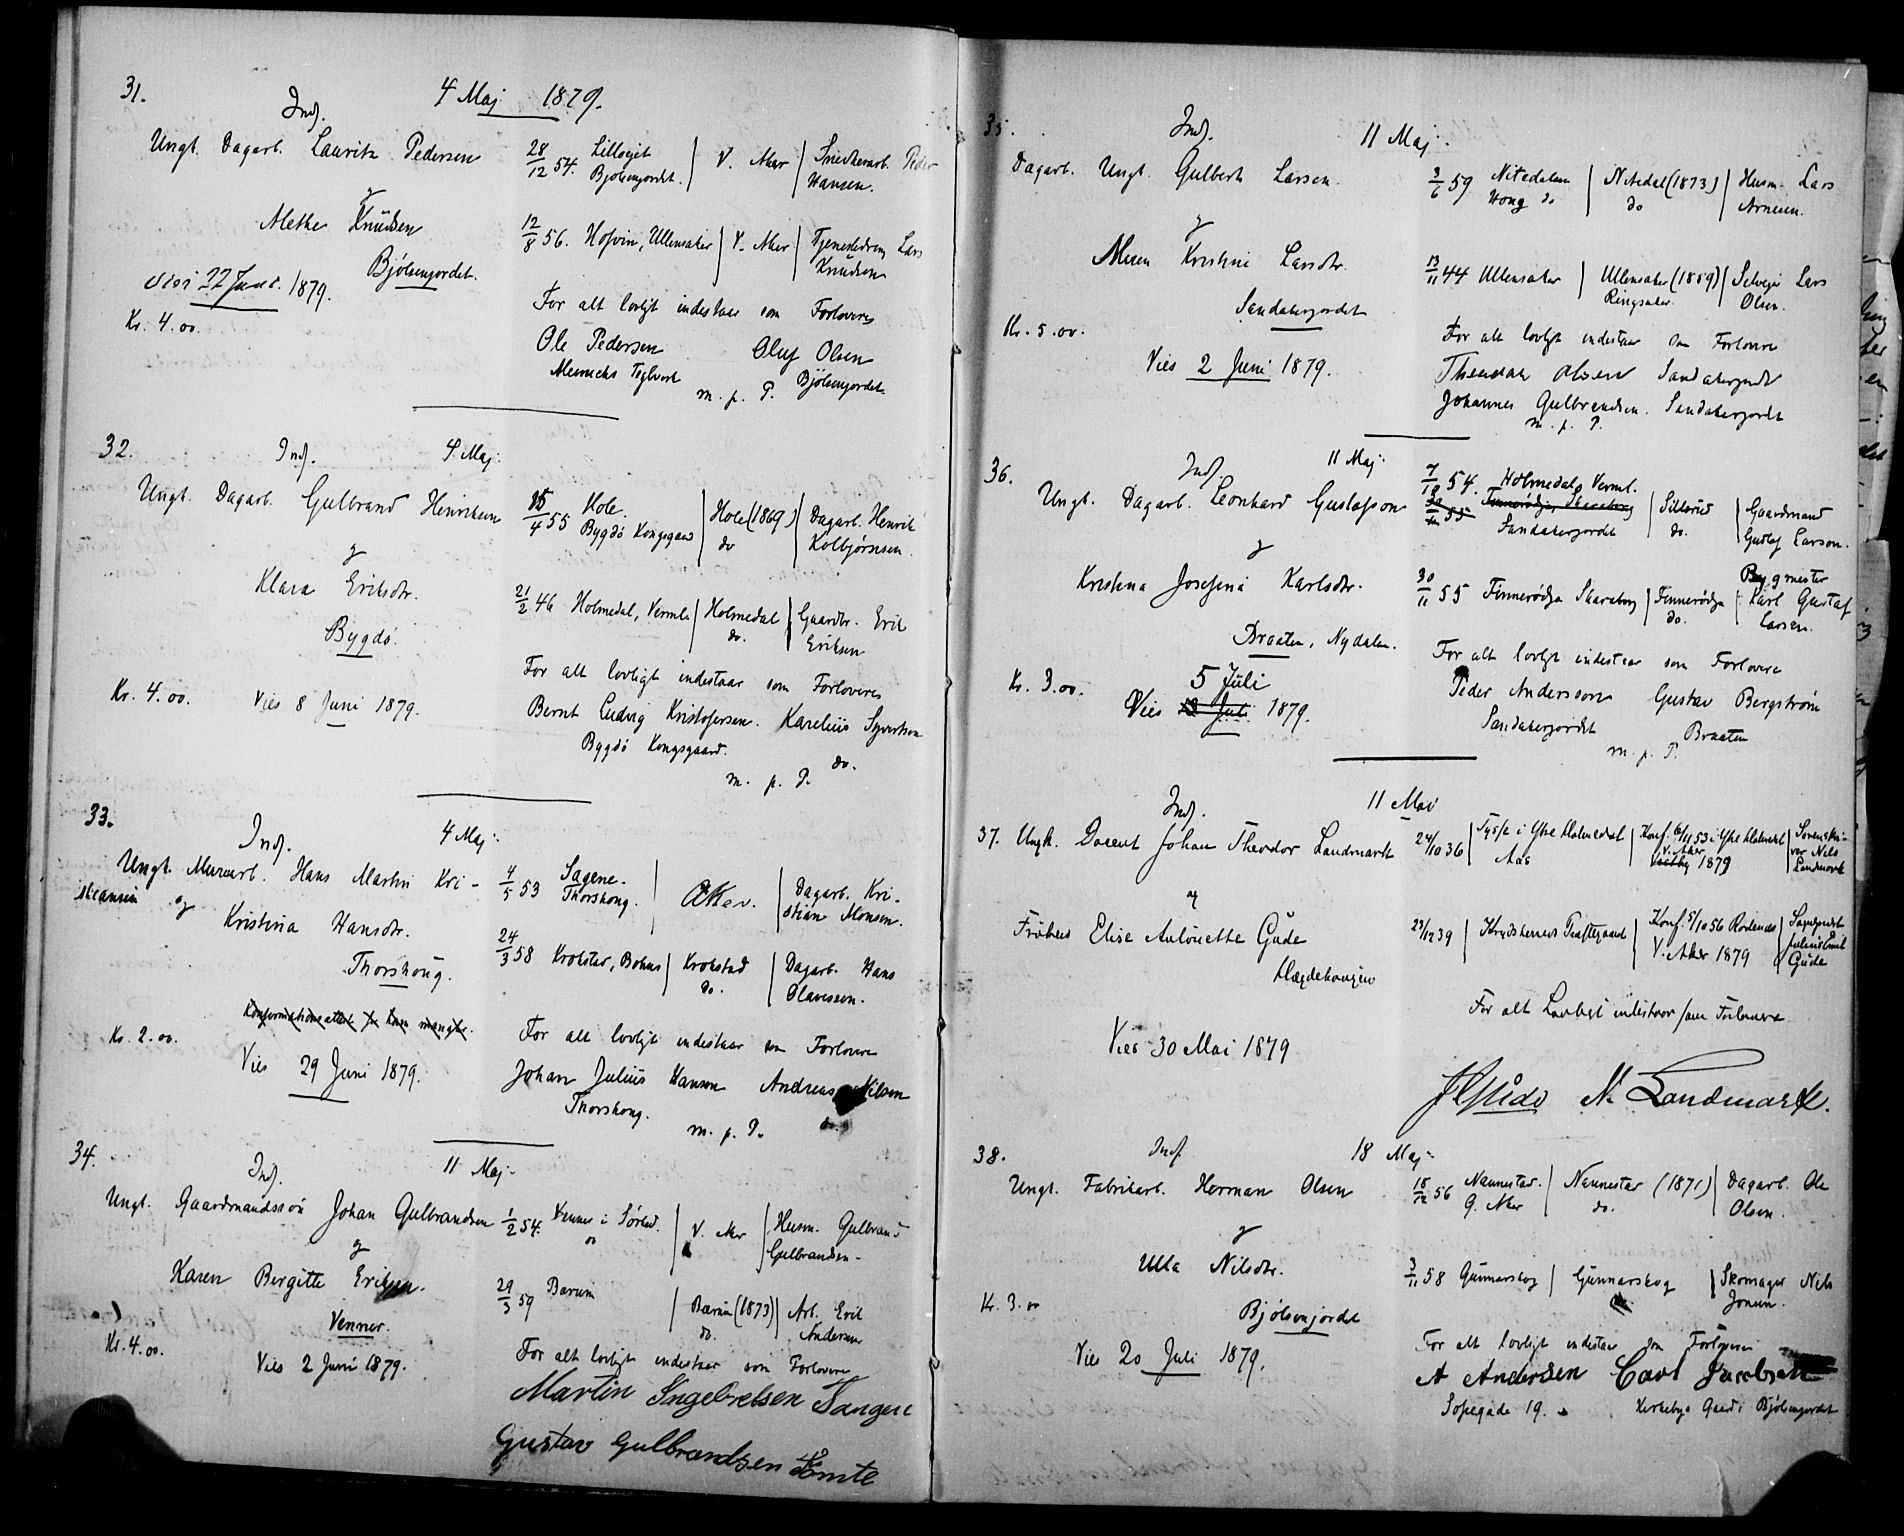 31.
4 Maj 1879.
Indf.
Ungk. Dagarb. Lauritz Pedersen
28/12 54. Lilloeiet Bjølsenjordet.
V. Aker
Snedkerarb. Peder Hansen.
og
Methe Knudsen
12/8 56. Hofvin, Ullensaker
V. Aker
Lars Knudsen
Bjølsenjordet.
Vies 22 Juni 1879.
Kr. 4.00.
For alt lovligt indestaar som Forlovere
Ole Pedersen Oluf Olsen
Teglverk Bjølsenjordet
m. p. P.
32.
Indf.
4 Maj.
Ungk. Dagarb. Gulbrand Henriksen
4 55 Hole. Bygdø Kongsgaard
Hole (1869) do
Dagarb. Henrik Kolbjørnsen.
og
Klara Eriksdr.
21/2 46 Holmedal, Verml.
Holmedal do.
Gaardbr. Erik Eriksen
Bygdø.
Kr. 4.00.
Vies 8 Juni 1879.
For alt lovligt indestaar som Forlovere
Bernt Ludvig Kristofersen. Karelius Syvertsen
Bygdø Kongsgaard. do.
m. p. P.
33.
Indf.
4 Maj.
Ungk. Murerarb. Hans Martin Kri-
stiansen og
4/5 53 Sagene. Thorshoug.
Aker.
Dagarb. Kri-
stian Monsen.
Kristina Hansdr.
24/3 58 Krokstad, Bohus
Krokstad do.
Dagarb. Hans Olavesson.
Thorshoug.
Konfirmationsattest for ham mangler.
Kr. 2.00.
Vies 29 Juni 1879.
For alt lovligt indestaar som Forlovere
Johan Julius Hansen Andreas Nilsen
Thorshoug. do.
m. p. P.
34.
Indf.
11 Maj.
Ungk. Gaardmandssøn Johan Gulbrandsen
1/2 54. Venner i Sørked. do
V. Aker
Husm. Gulbrand Gulbrandsen.
og
Karen Bergitte Eriksen.
29/3 59 Bærum
Bærum (1873) do.
Arb. Erik Andersen
Venner.
Kr. 4.00.
Vies 2 Juni 1879.
For alt lovligt indestaar som Forlovere
Martin Ingebretsen Tangen
Gustav Gulbrandsen
35.
Indf.
11 Maj.
Dagarb. Ungk. Gulbert Larsen.
3/6 59 Nitedalen Houg do
Nitedal (1873) do
Husm. Lars Arnesen.
og
Maren Kristine Larsdtr.
13/11 44 Ullensaker
Ullensaker (1859) Ringsaker.
Selveier Lars Olsen.
Sandakerjordet
Kr. 5.00.
Vies 2 Juni 1879.
For alt lovligt indestaar som Forlovere
Theodor Olsen Sandakerjordet
Johannes Gulbrandsen. Sandakerjordet
m. p. P.
36.
Indf.
11 Maj.
Ungk. Dagarb. Leonhard Gustafson
54. Holmedal, Verml.
55 Finnerødja, Skaraborg
Sandakerjordet
Sillerud do.
Gaardmand Gustaf Larson.
og
Kristina Josefina Karlsdtr.
30/11 55 Finnerødja Skaraborg
Finnerødja do.
Bygmester Karl Gustaf Larsen.
Braaten, Nydalen.
Kr. 3.00.
5 Juli
Vies Juli 1879.
For alt lovligt indestaar som Forlovere
Peder Andersson Gustav Bergstrøm
Sandakerjordet Braaten
m. p. P.
11 Mai
Indf.
37. Ungk. Docent Johan Theodor Landmark
24/10 36 i Ytre Holmedal Aas
Konf. 6/11 53 i Ytre Holmedal V. Aker 1879
Sorenskri-
ver Nils Landmark
og
Frøken Elise Antoinette Gude
23/12 39
Konf. 5/10 56 V. Aker 1879
Gude
Hægdehougen
For alt Lovligt indestaar som Forlovere
Vies 30 Mai 1879
Gude N. Landmark.
38.
Indf.
18 Maj.
Ungk. Fabrikarb. Herman Olsen
18/12 56 Nannestad. G. Aker
Nannestad (1871) do.
Dagarb. Ole Olsen.
og
Ulla Nilsdtr.
3/11 58 Gunnarskog
Gunnarskog
Skomager Nils Jonsen.
Bjølsenjordet
Kr. 3.00
Vies 20 Juli 1879.
For alt lovligt indestaar som Forlovere
A Andersen Carl Jacobsen
Sofiegade 19. Kirkebye Gaard, Bjølsenjordet